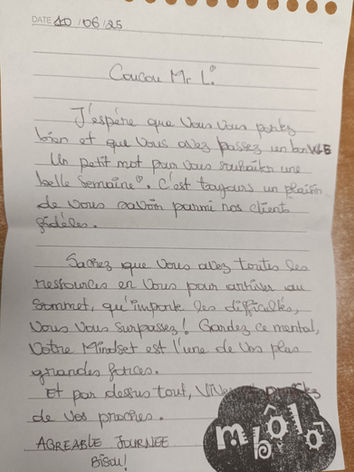 DATE 10 / 06 / 25
Coucou Mr L.
J'espère que vous vous portez
bien et que vous avez passez un bon WE
Un petit mot pour vous souhaiter une
belle semaine. C'est toujours un plaisir
de vous savoir parmi nos clients
fidèles.
Sachez que vous avez toutes les
ressources en vous pour arriver au
sommet, qu'importe les difficultés,
vous vous surpassez ! Gardez ce mental,
votre Mindset est l'une de vos plus
grandes forces.
Et par dessus tout, vivez
de vos proches.
AGREABLE JOURNEE
Bisou!
mbôlô